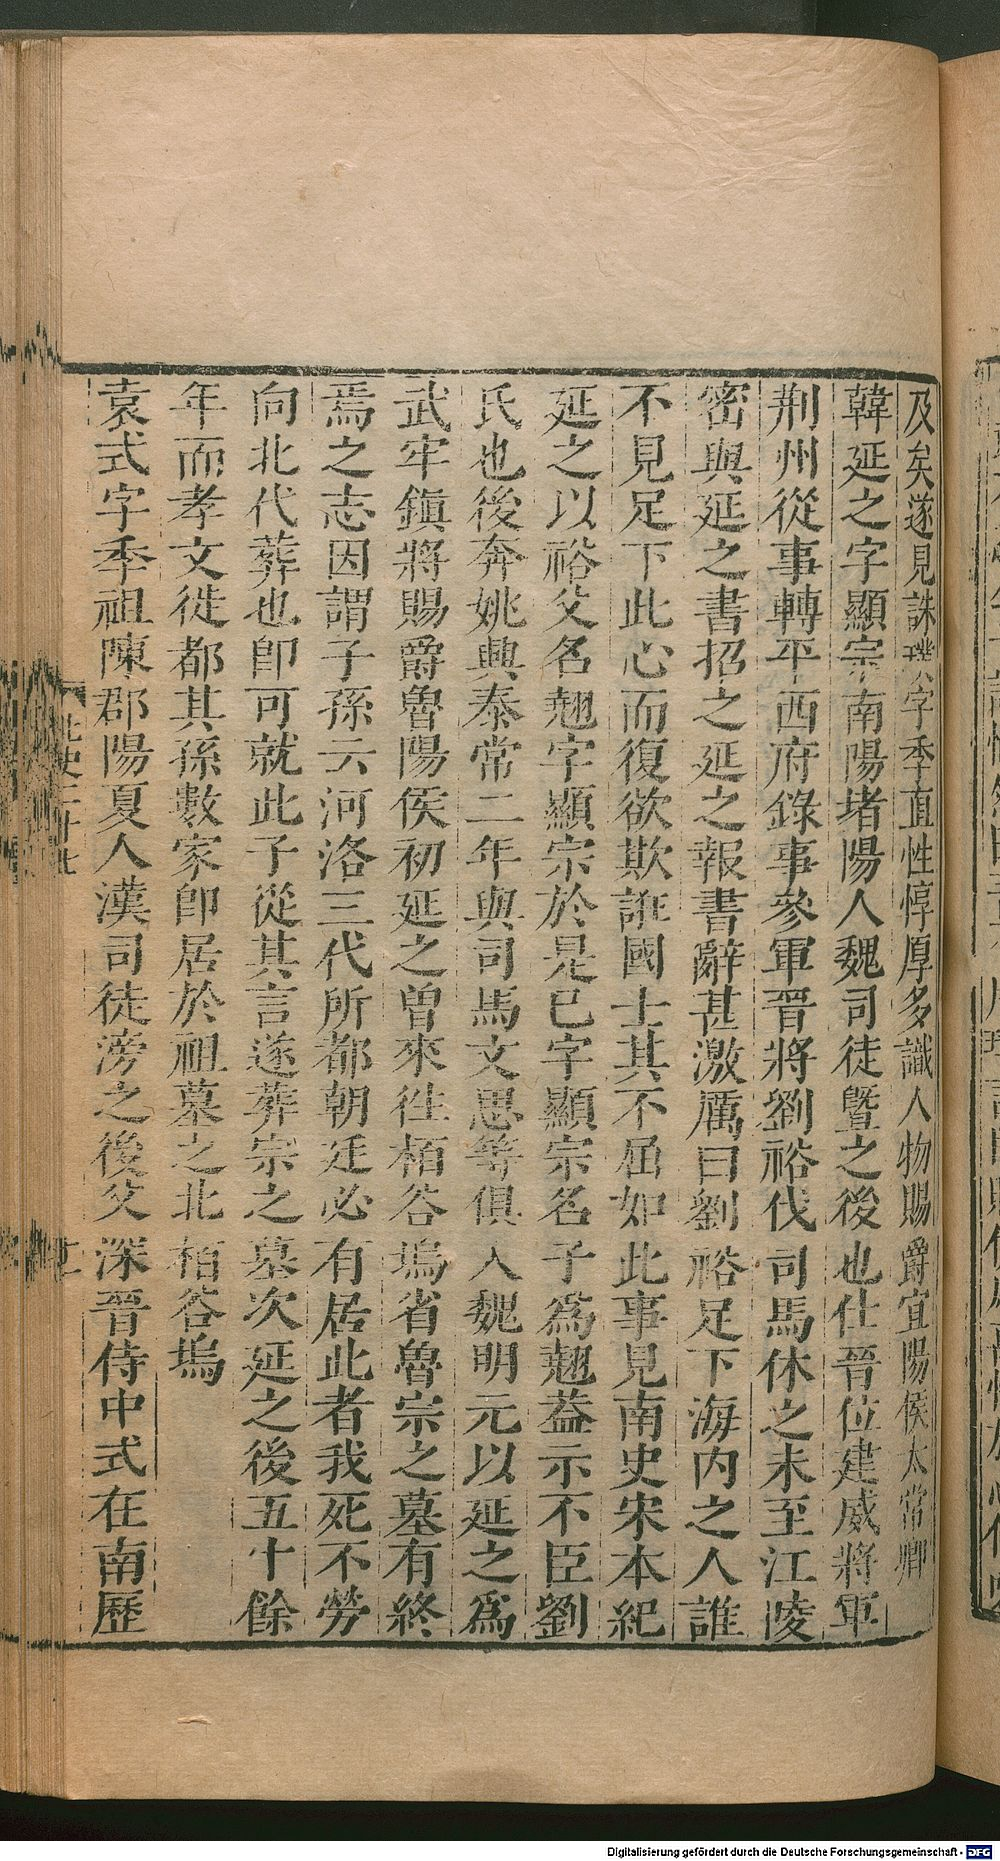 及矣遂見誅璞字季直性惇厚多識人物賜爵宜陽侯太常卿
韓延之字顯宗南陽堵陽人魏司徒暨之後也仕晉位建威將軍
荆州從事轉平西府錄事參軍晉將劉裕伐司馬休之未至江陵
密與延之書招之延之報書辭甚激厲曰劉裕足下海内之人誰
不見足下此心而復欲欺誑國士其不屈如此事見南史宋本紀
延之以裕父名翹字顯宗於是己字顯宗名子為翹蓋示不臣劉
氏也後奔姚興泰常二年與司馬文思等俱入魏明元以延之為
武牢鎮將賜爵魯陽侯初延之曾來往栢谷塢省魯宗之墓有終
焉之志因謂子孫云河洛三代所都朝廷必有居此者我死不勞
向北代葬也卽可就此子從其言遂葬宗之墓次延之後五十餘
年而孝文徙都其孫數家卽居於祖墓之北栢谷塢
袁式字季祖陳郡陽夏人漢司徒滂之後父深晉侍中式在南歷
北史二十七
Digitalisierung gefördert durch die Deutsche Forschungsgemeinschaft - DFG